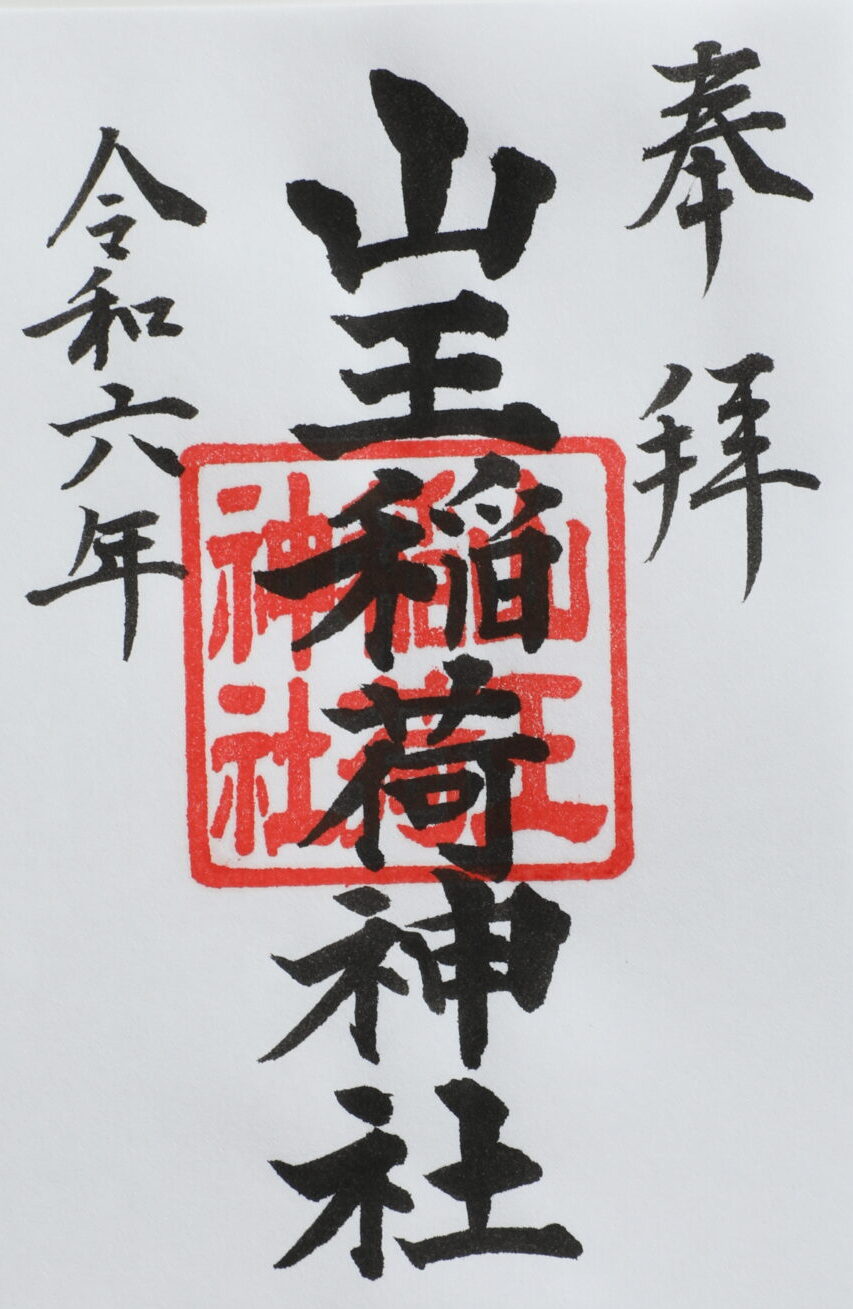 奉拝
山王稲荷神社
山王
稲荷
神社
令和六年